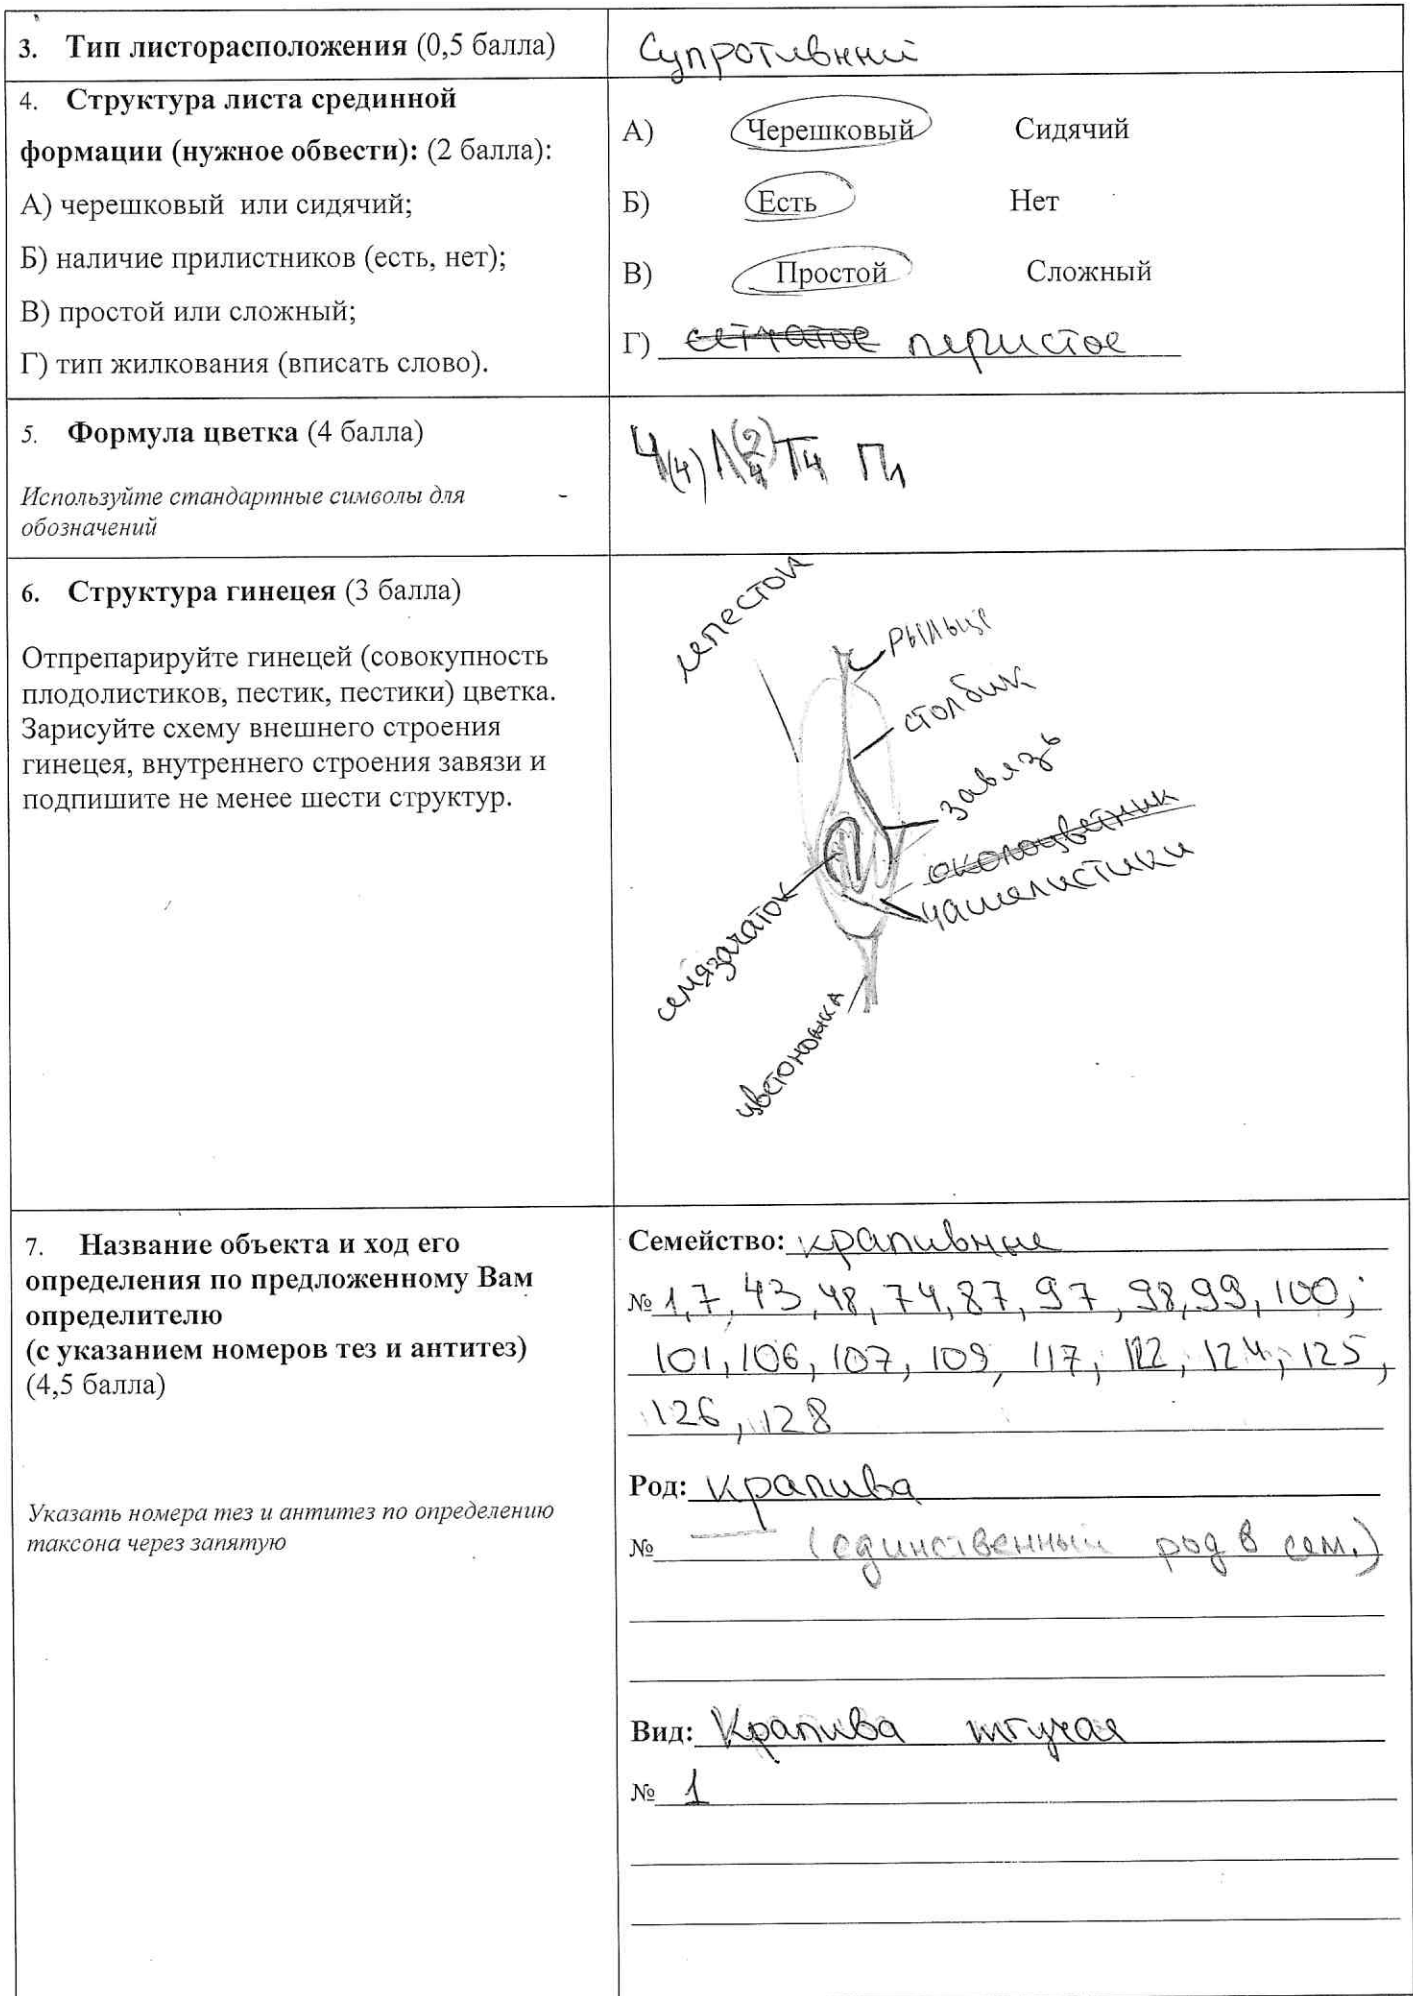 3. Тип листорасположения (0,5 балла)
Супротивний
4. Структура листа срединной
формации (нужное обвести): (2 балла):
А) черешковый или сидячий;
Б) наличие прилистников (есть, нет);
В) простой или сложный;
Г) тип жилкования (вписать слово).
А) Черешковый Сидячий
Б) Есть Нет
В) Простой Сложный
Г) сетчатое перистое
5. Формула цветка (4 балла)
Используйте стандартные символы для
обозначений
Ч(4) Л(2)4 Т4 П1
6. Структура гинецея (3 балла)
Отпрепарируйте гинецей (совокупность
плодолистиков, пестик, пестики) цветка.
Зарисуйте схему внешнего строения
гинецея, внутреннего строения завязи и
подпишите не менее шести структур.
лепесток
рыльце
столбик
завязь
околоцветник
чашелистики
семязачаток
цветоножка
7. Название объекта и ход его
определения по предложенному Вам
определителю
(с указанием номеров тез и антитез)
(4,5 балла)
Указать номера тез и антитез по определению
таксона через запятую
Семейство: крапивные
№ 1, 7, 43, 48, 74, 87, 97, 98, 99, 100,
101, 106, 107, 109, 117, 122, 124, 125,
126, 128
Род: крапива
№ — (единственный род в сем.)
Вид: Крапива жгучая
№ 1